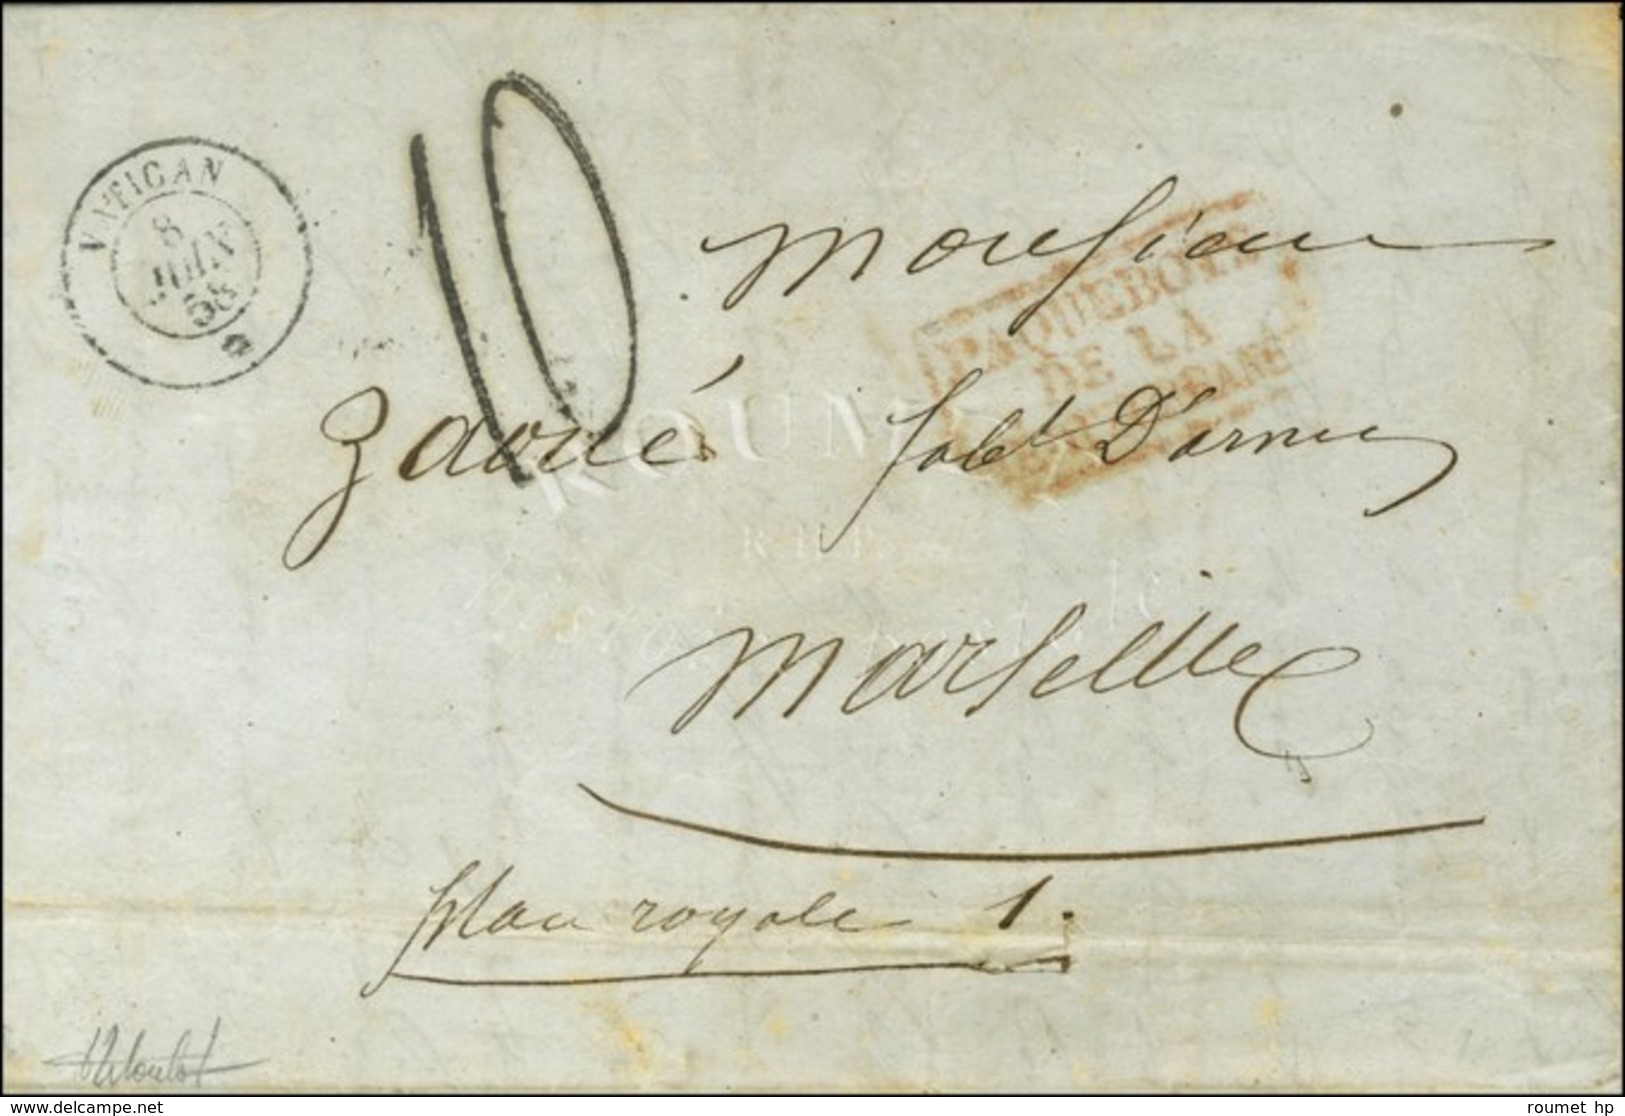 VATICAN
8
JUIN
58
10
Monsieur
PAQUEBOTS
DE LA
Zaoué fabt D'armes
ROUMET
R.H.P.
Histoire postale
Marseille
place royale 1.
roumet hp
delcampe.net